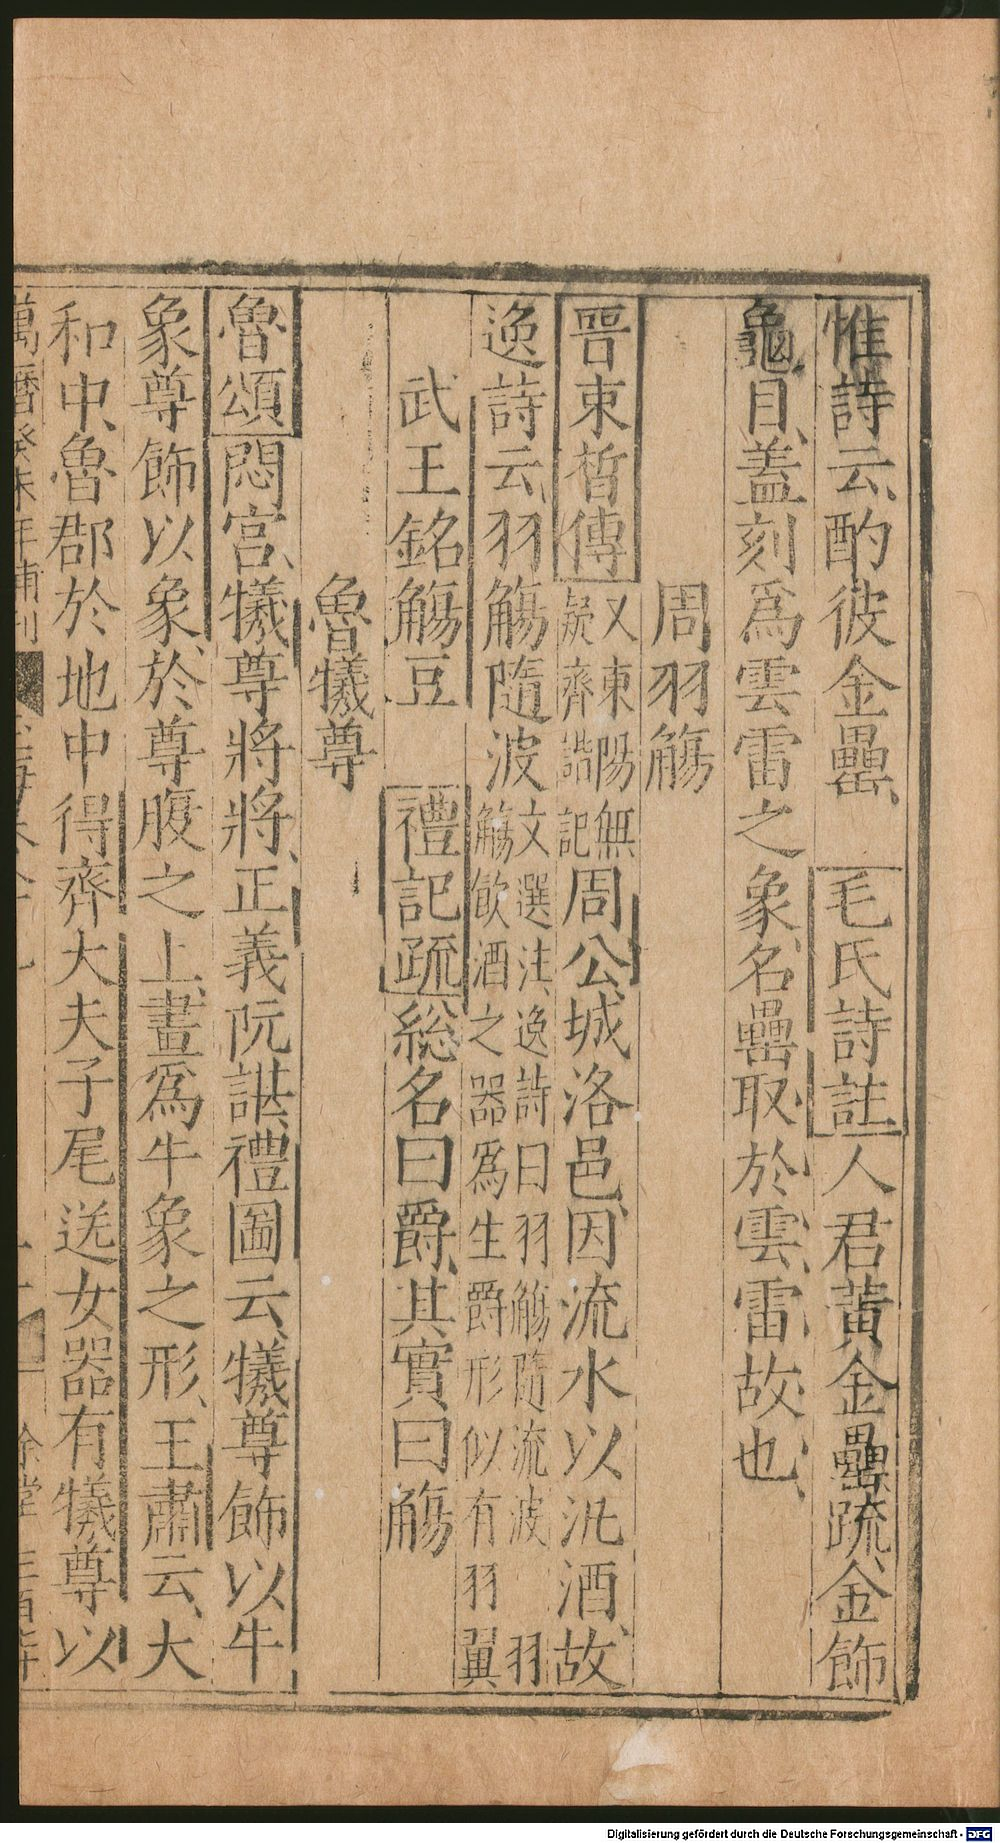 惟詩云酌彼金罍　毛氏詩註人君黃金罍疏金飾
龜目蓋刻爲雲雷之象名罍取於雲雷故也
周羽觴
晉束晳傳又東陽無疑齊諧記周公城洛邑因流水以汎酒故
逸詩云羽觴隨波文選注逸詩曰羽觴隨流波　羽觴飲酒之器爲生爵形似有羽翼
武王銘觴豆　禮記疏総名曰爵其實曰觴
魯犧尊
魯頌閟宮犧尊將將正義阮諶禮圖云犧尊飾以牛
象尊飾以象於尊腹之上畫爲牛象之形王肅云大
和中魯郡於地中得齊大夫子尾送女器有犧尊以
萬曆癸未年補刊
Digitalisierung gefördert durch die Deutsche Forschungsgemeinschaft - DFG